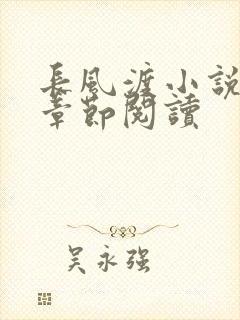 長風渡小說
章節閱讀
吴永强